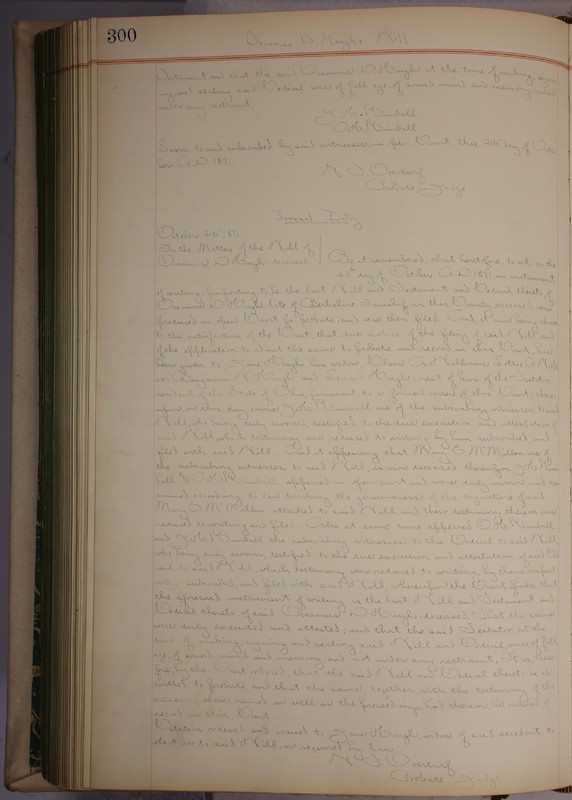 300
D. Hough's Will
Testament and that the said D. Hough at the time of making, sign-
ing and sealing said Codicil was of full age, of sound mind and memory and not
under any restraint.
J. H. Kimball
O. H. Kimball
Sworn to and subscribed by said witnesses in open Court, this 26 day of Octo-
ber A.D. 1891.
Probate Judge
Journal Entry
October 26" 1891.
In the Matter of the Will of
D. Hough, deceased
Be it remembered, that heretofore, to wit, on the
day of October A.D. 1891 an instrument
of writing, purporting to be the last Will and Testament and Codicil thereto, of
D. Hough, late of Berkshire Township in this County deceased, was
produced in open Court for probate, and was then filed. And it now being shown
to the satisfaction of the Court, that due notice of the filing of said Will and
of the application to admit the same to probate and record in this Court, has
been given to Jane Hough his widow,
Hough and Hough next of kin of the Testator
resident of the State of Ohio, pursuant to a former order of this Court, there-
upon, on this day came J. H. Kimball one of the subscribing witnesses to said
Will, who being duly sworn, testified to the due execution and attestation of
said Will, which testimony was reduced to writing by him subscribed and
filed with said Will. And it appearing that Mary E. McMillen one of
the subscribing witnesses to said Will, is now deceased thereupon J. H. Kim-
ball & O. H. Kimball appeared in open court and were duly sworn and ex-
amined according to law touching the genuineness of the signature of said
Mary E. McMillen attached to said Will, and their testimony therein was
reduced to writing and filed. Also at same time appeared O. H. Kimball
and J. H. Kimball the subscribing witnesses to the Codicil to said Will,
who being duly sworn, testified to the due execution and attestation of said Codi-
cil to said Will, which testimony was reduced to writing, by them
subscribed, and filed with said Will, whereupon the Court finds that
the aforesaid instrument of writing is the last Will and Testament and
Codicil thereto of said D. Hough, deceased. That the same
were duly executed and attested; and that the said Testator, at the
time of making, signing and sealing said Will and Codicil, was of full
age, of sound mind and memory, and not under any restraint. It is, there-
fore, by the Court ordered, that the said Will and Codicil thereto be ad-
mitted to probate and that the same, together with the testimony of the
witnesses above named as well as the proceedings had therein, be entered of
record in this Court.
Citation ordered and issued to Jane Hough, widow of said decedent, to
elect as to said Will, as required by law.
Probate Judge